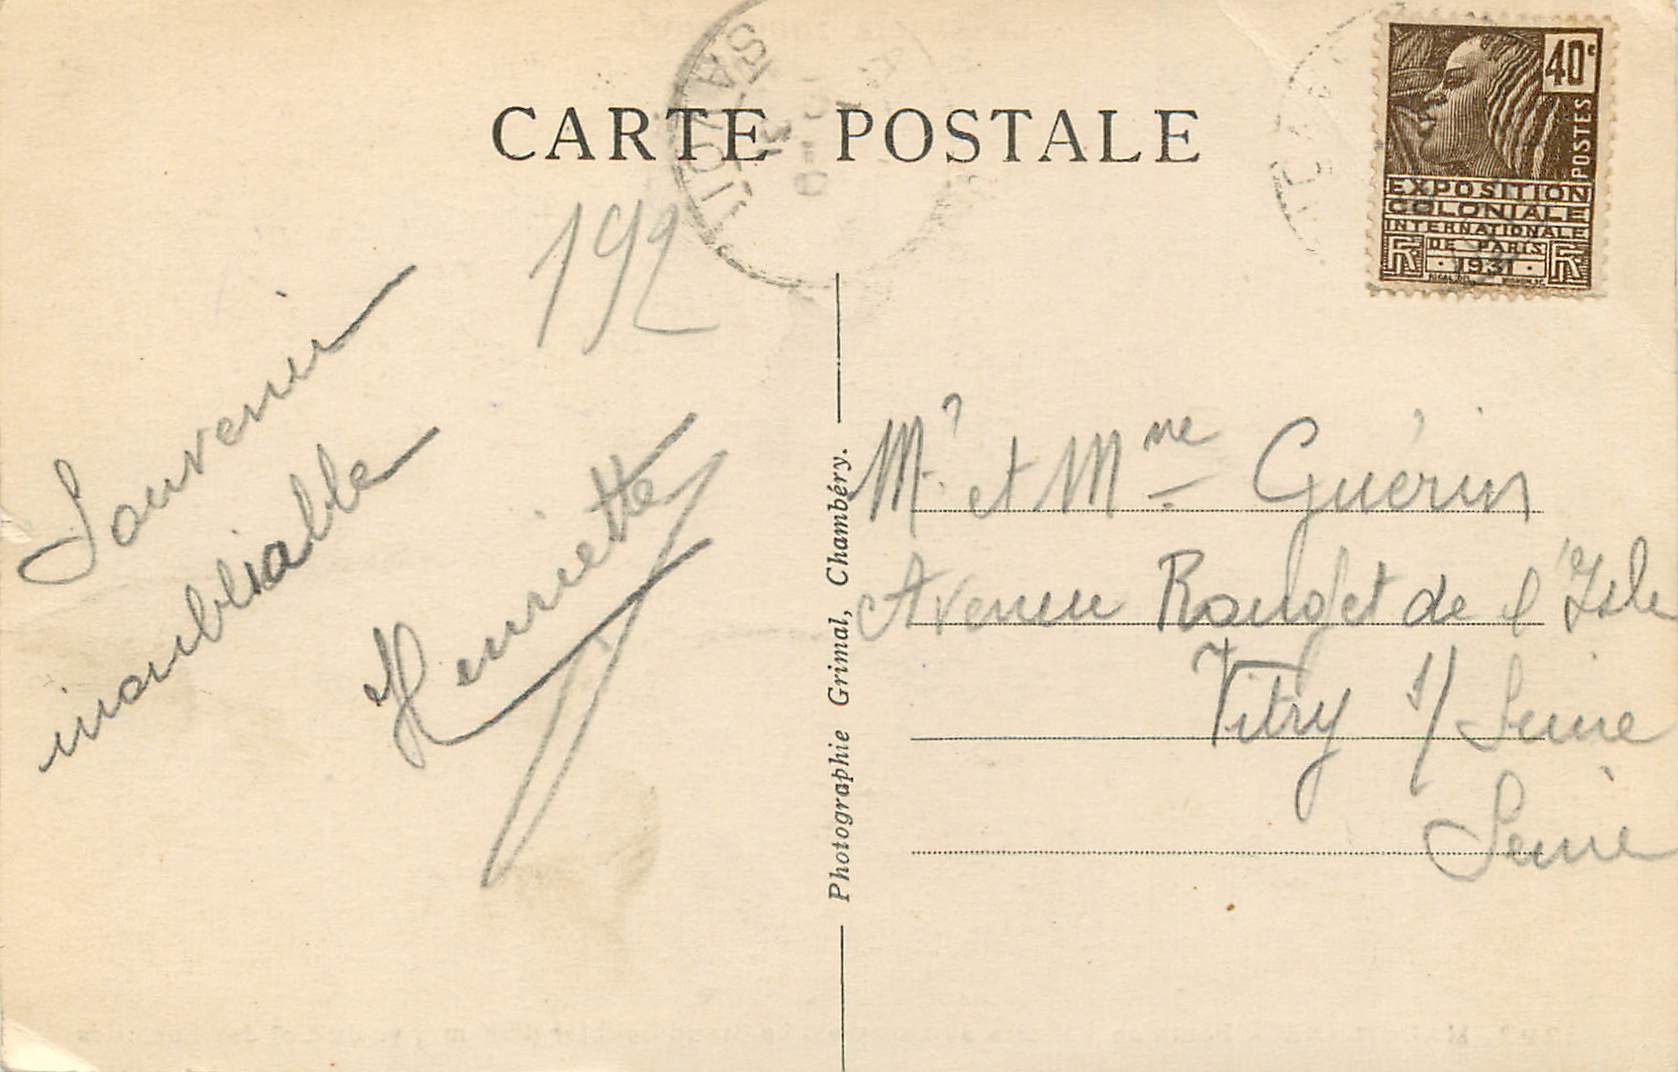 CARTE POSTALE
40c
POSTES
EXPOSITION
COLONIALE
INTERNATIONALE
DE PARIS
1931
192
Souvenir
inoubliable
Henriette
Photographie Grimal, Chambéry.
Mr et Mme Guérin
Avenue Rouget de l'Isle
Vitry s/ Seine
Seine